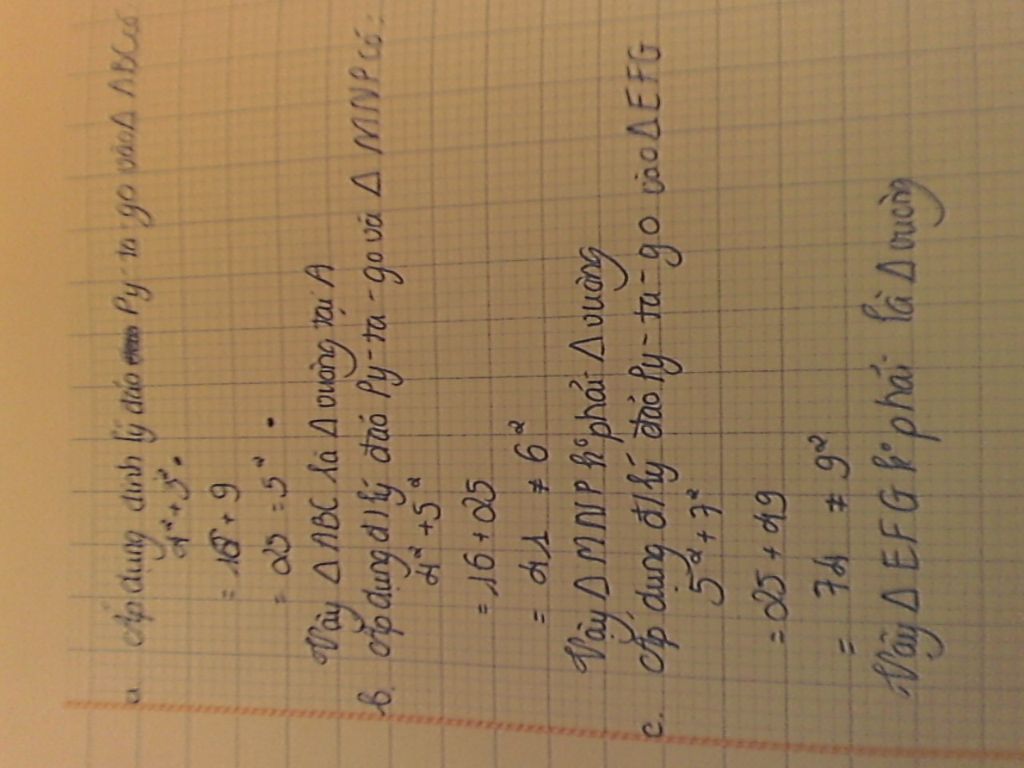 a. Áp dụng định lý đảo Py-ta-go vào Δ ABC có
4² + 3²
= 16 + 9
= 25 = 5²
Vậy Δ ABC là Δ vuông tại A
b. Áp dụng đ/lý đảo Py-ta-go và Δ MNP có:
4² + 5²
= 16 + 25
= 41 ≠ 6²
Vậy Δ MNP k° phải Δ vuông
c. Áp dụng đ/lý đảo Py-ta-go vào Δ EFG
5² + 7²
= 25 + 49
= 74 ≠ 9²
Vậy Δ EFG k° phải là Δ vuông